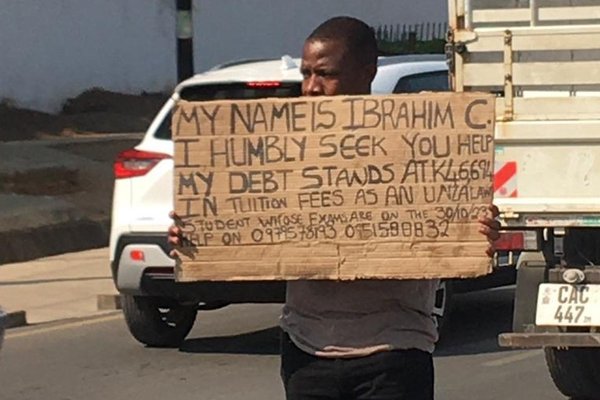 MY NAME IS IBRAHIM C.
I HUMBLY SEEK YOU HELP
MY DEBT STANDS AT K46694
IN TUITION FEES AS AN UNZA LAW
STUDENT WHOSE EXAMS ARE ON THE 30/10/23
HELP ON 0979578193 0951580832
CAC
447